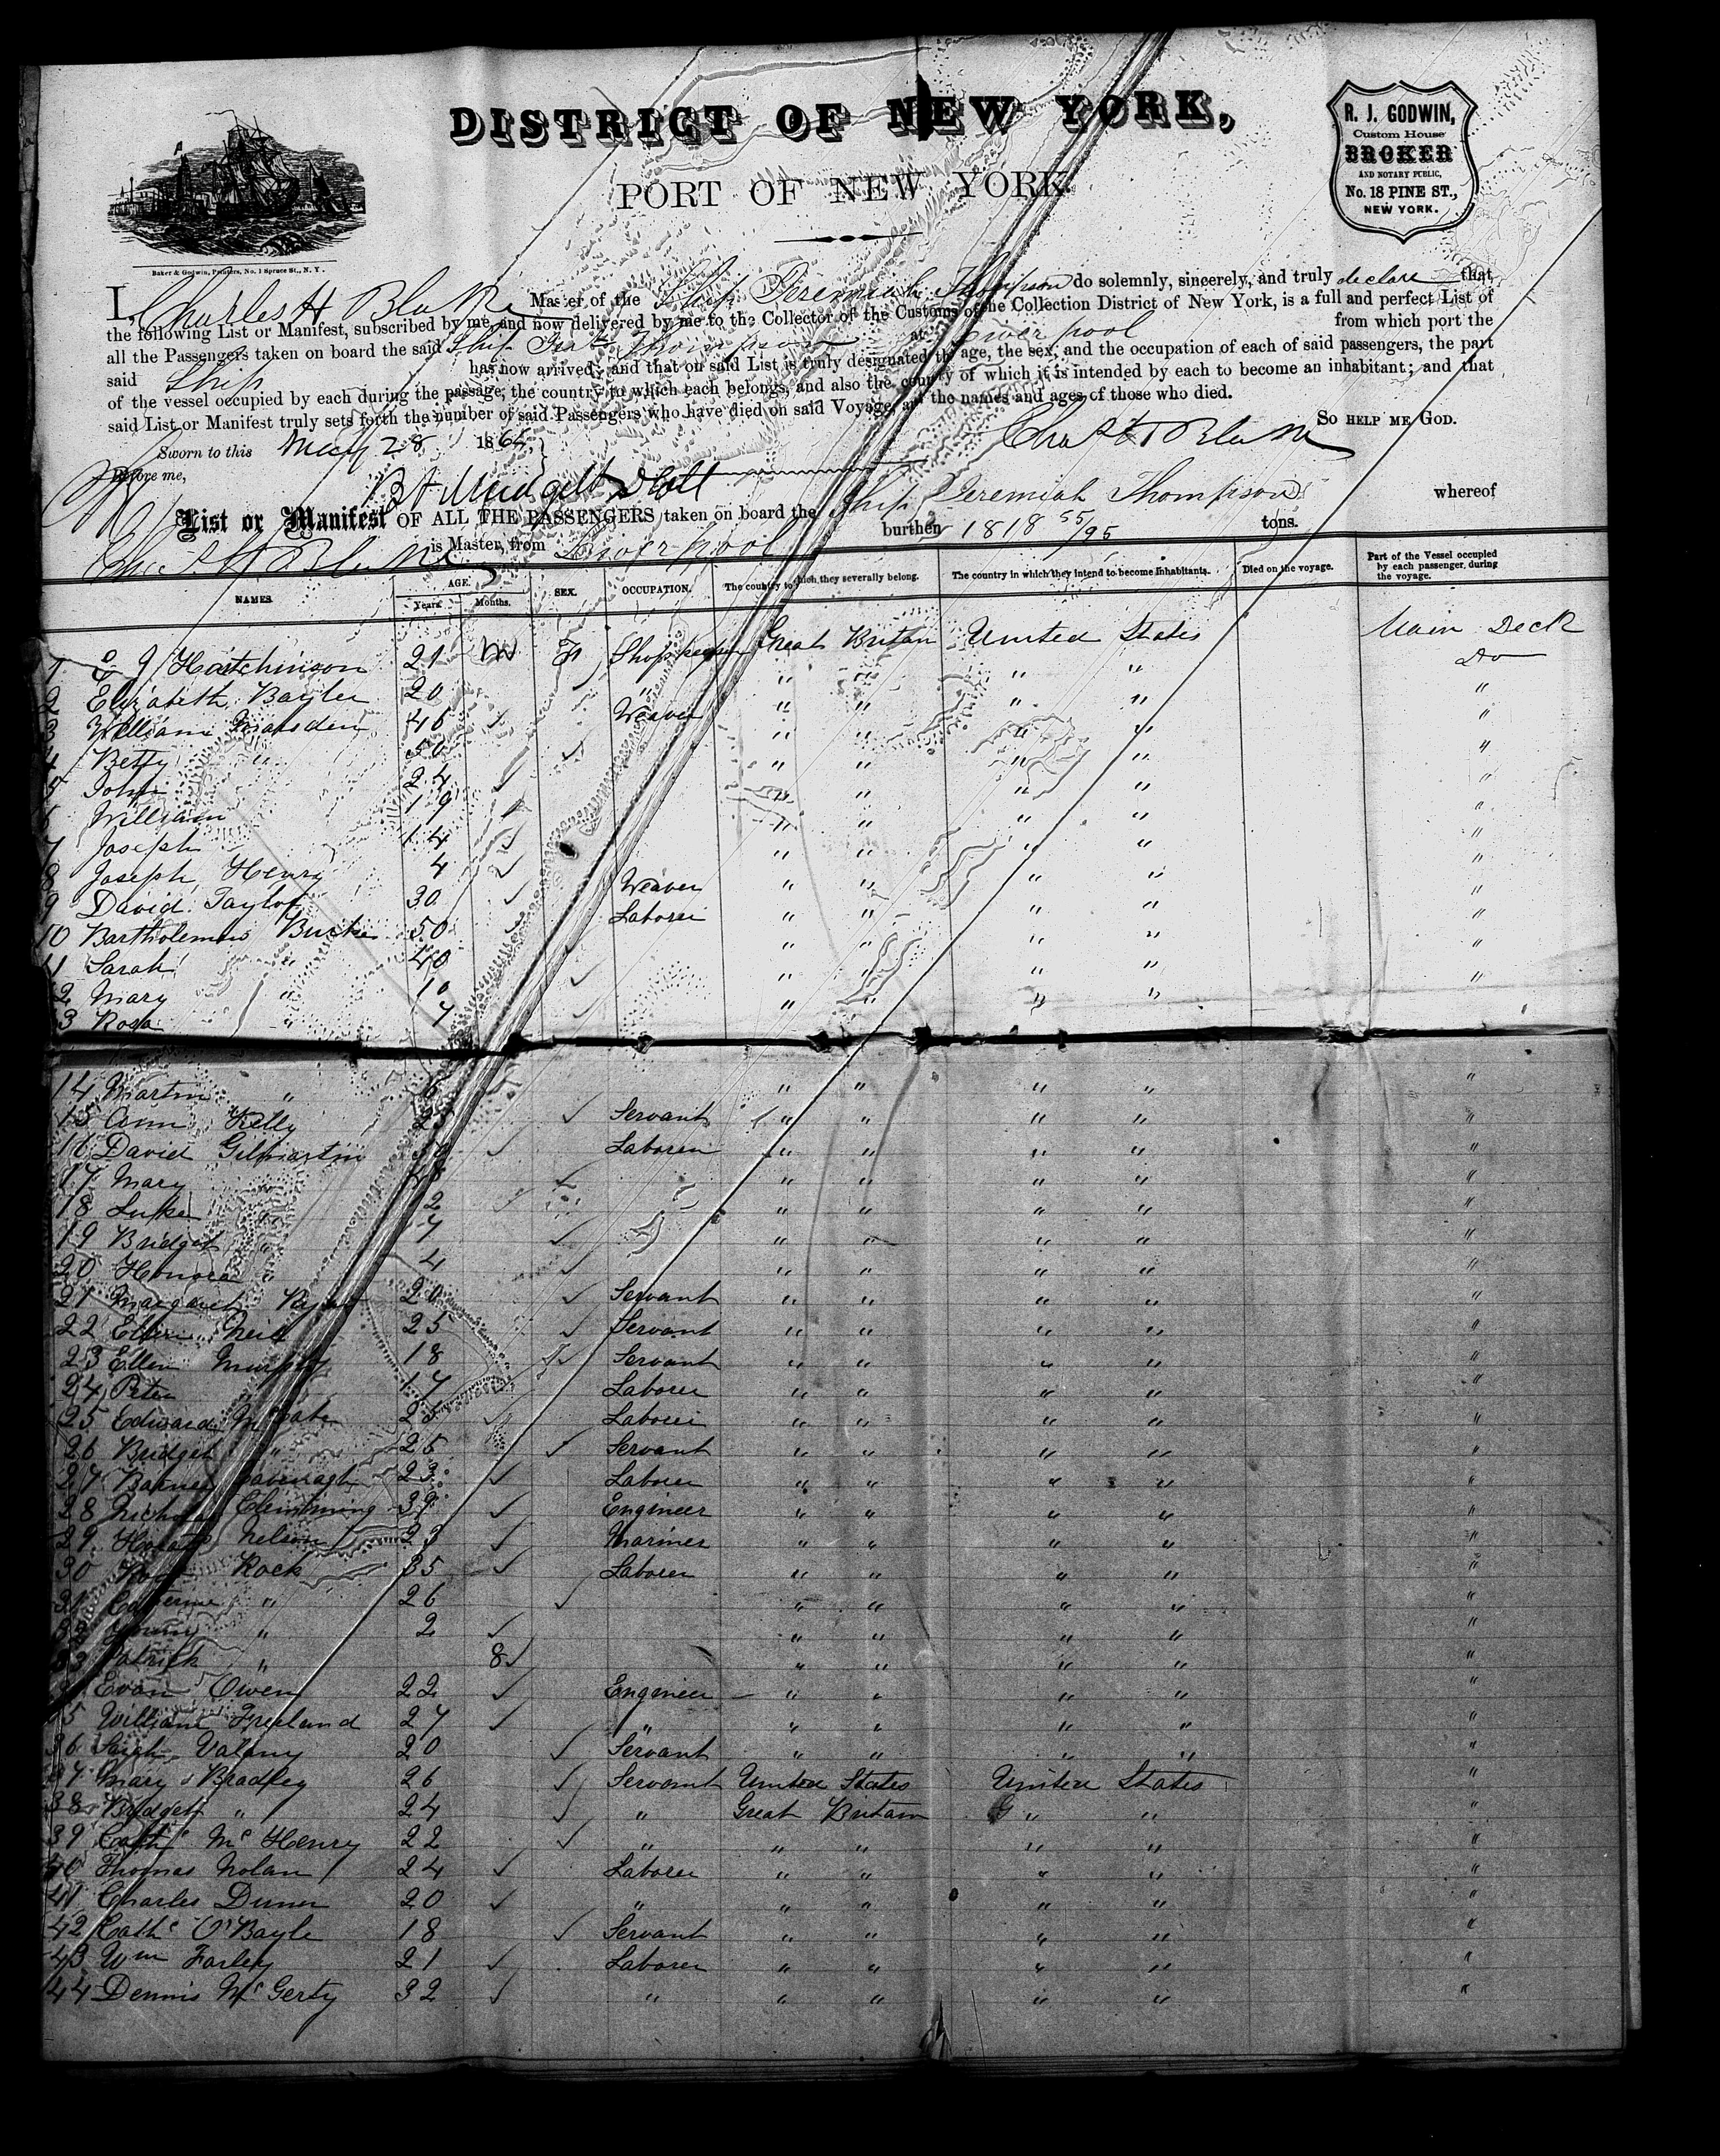 DISTRICT OF NEW YORK,
PORT OF NEW YORK.
R. J. GODWIN,
Custom House
BROKER
AND NOTARY PUBLIC,
No. 18 PINE ST.,
NEW YORK.
Baker & Godwin, Printers, No. 1 Spruce St., N. Y.
I, Charles H Blake Master of the Ship Jeremiah Thompson do solemnly, sincerely, and truly declare that
the following List or Manifest, subscribed by me, and now delivered by me to the Collector of the Customs of the Collection District of New York, is a full and perfect List of
all the Passengers taken on board the said Ship Jerh Thompson at Liverpool from which port the
said Ship has now arrived; and that on said List is truly designated the age, the sex, and the occupation of each of said passengers, the part
of the vessel occupied by each during the passage, the country to which each belongs, and also the country of which it is intended by each to become an inhabitant; and that
said List or Manifest truly sets forth the number of said Passengers who have died on said Voyage, and the names and ages of those who died.
SO HELP ME GOD.
Sworn to this May 28 1864
Chas H Blake
Before me,
List or Manifest OF ALL THE PASSENGERS taken on board the Ship Jeremiah Thompson whereof
Chas H Blake is Master, from Liverpool burthen 1818 55/95 tons.
NAMES. AGE. Years. Months. SEX. OCCUPATION. The country to which they severally belong. The country in which they intend to become Inhabitants. Died on the voyage. Part of the Vessel occupied by each passenger, during the voyage.
1 Hutchinson 21 M F Shopkeeper Great Britain United States Main Deck
2 Elizabeth Bayler 20 " " " " " Do
3 William Marsden 46 ✓ Weaver " " " " "
4 Betty " 50 ✓ " " " " "
5 John 24 ✓ " " " " "
6 William 19 " " " " "
7 Joseph 14 ✓ " " " " "
8 Joseph Henry 4 ✓ " " " " "
9 David Taylor 30 ✓ Weaver " " " " "
10 Bartholemew Burke 50 Laborer " " " " "
11 Sarah " 40 ✓ " " " " "
12 Mary " 10 ✓ " " " " "
13 Rosa " 7 ✓ " " " " "
14 Martin " 5 " " " " "
15 Ann Kelly 25 ✓ Servant " " " " "
16 David Gilmartin ✓ Laborer " " " " "
17 Mary ✓ " " " " "
18 Luke " 2 ✓ " " " " "
19 Bridget " 7 ✓ " " " " "
20 Honora " 4 ✓ " " " " "
21 Margaret 20 ✓ Servant " " " " "
22 Ellen Neil 25 ✓ Servant " " " " "
23 Ellen Murphy 18 ✓ Servant " " " " "
24 Peter " 17 Laborer " " " " "
25 Edward McCabe 25 ✓ Laborer " " " " "
26 Bridget " 25 ✓ Servant " " " " "
27 Barney Cavenagh 23 ✓ Laborer " " " " "
28 Nicholas 39 ✓ Engineer " " " " "
29 Nelson 23 ✓ Mariner " " " " "
30 Rock 35 ✓ Laborer " " " " "
31 Catherine " 26 ✓ " " " " "
32 " 2 ✓ " " " " "
33 Patrick " 8 ✓ " " " " "
Evan Owen 22 ✓ Engineer " " " " "
5 William Freeland 27 ✓ " " " " " "
36 Sarah Valany 20 ✓ Servant " " " " "
37 Mary Bradley 26 ✓ Servant United States United States "
38 Bridget " 24 ✓ " Great Britain " " "
39 Cathe McHenry 22 ✓ " " " " " "
40 Thomas Nolan 24 ✓ Laborer " " " " "
41 Charles Dunn 20 ✓ " " " " " "
42 Cathe O'Bayle 18 ✓ Servant " " " " "
43 Wm Farley 21 ✓ Laborer " " " " "
44 Dennis McGerty 32 ✓ " " " " " "